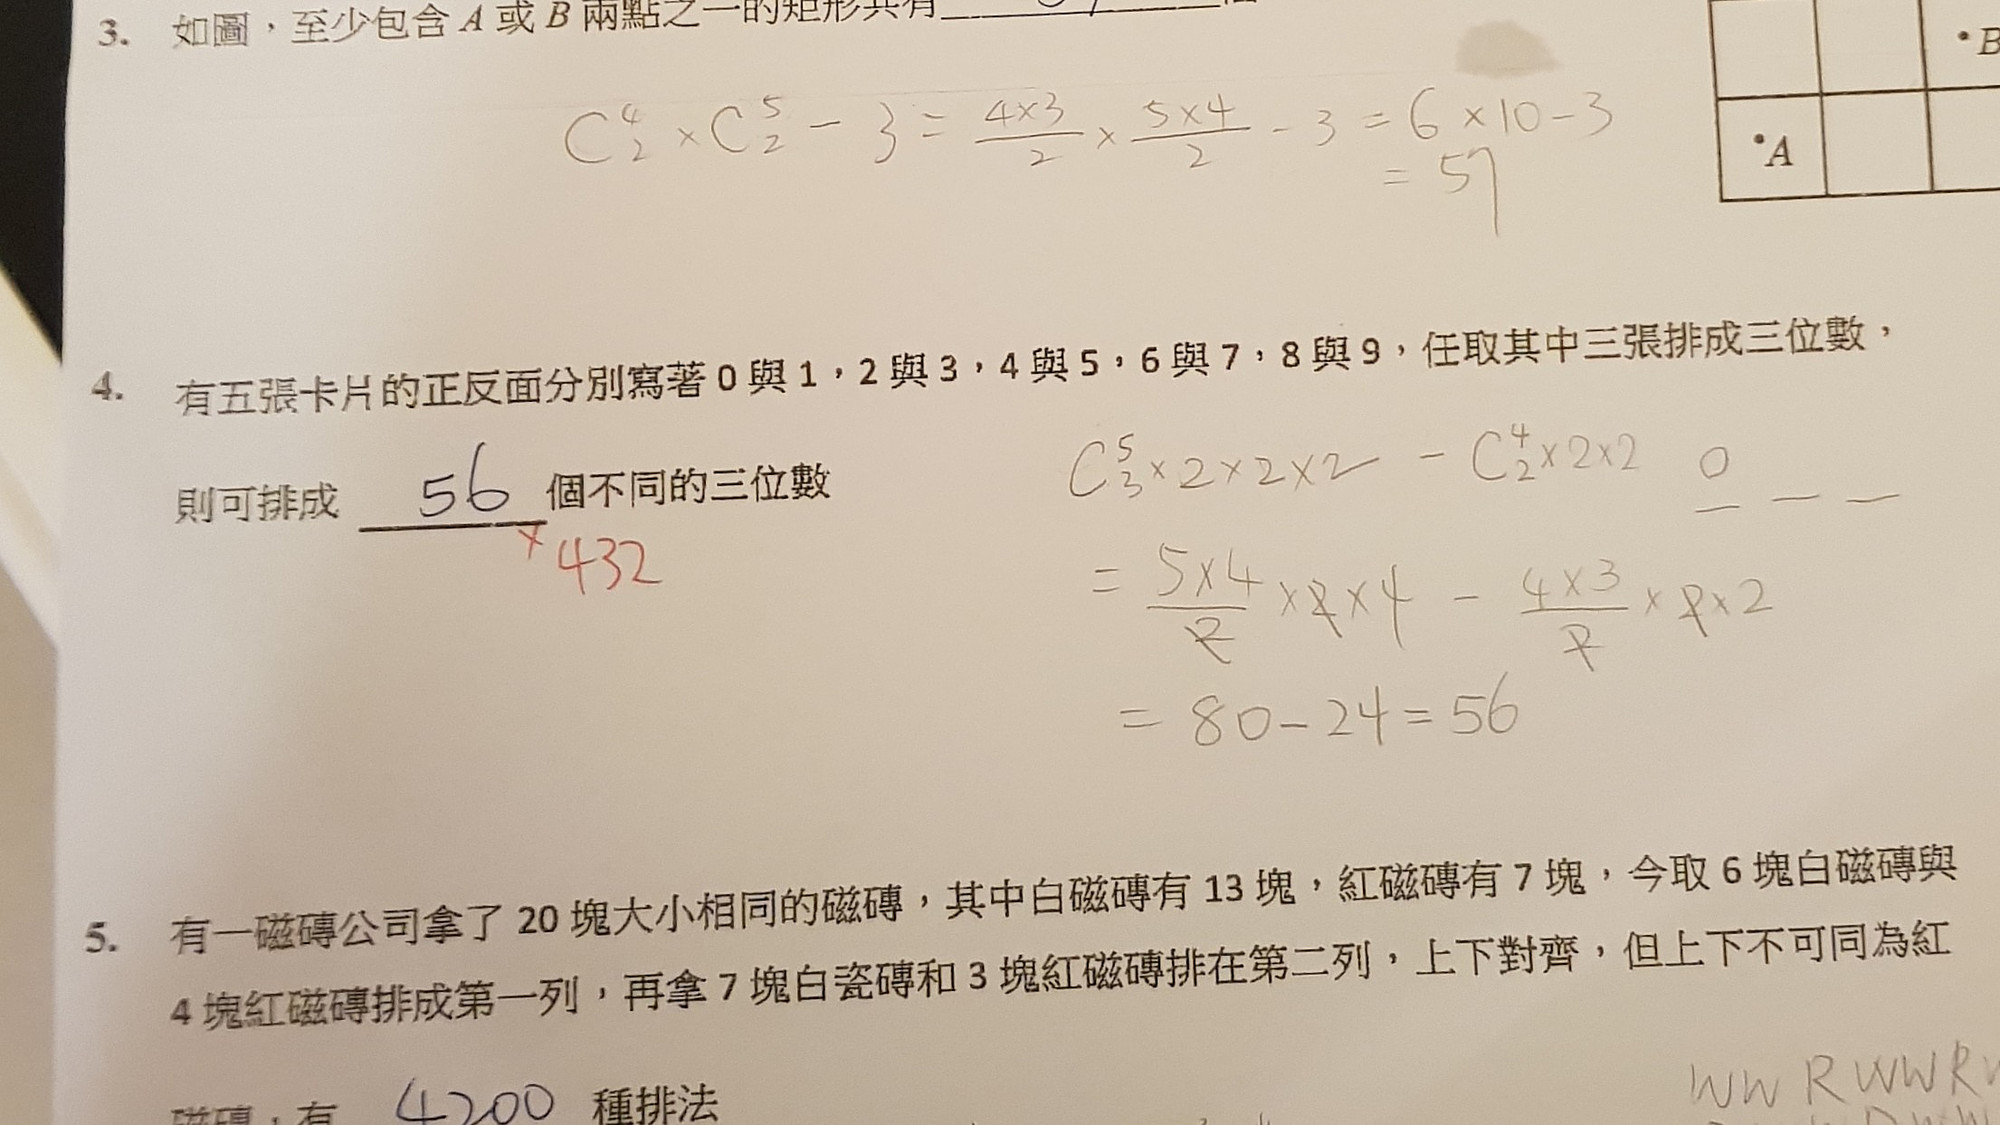 3. 如圖，至少包含 A 或 B 兩點之一的矩形共有
C⁴₂ × C⁵₂ − 3 = 4×3/2 × 5×4/2 − 3 = 6 × 10 − 3
= 57
B
A
4. 有五張卡片的正反面分別寫著 0 與 1，2 與 3，4 與 5，6 與 7，8 與 9，任取其中三張排成三位數，
則可排成 56 個不同的三位數
× 432
C⁵₃ × 2 × 2 × 2 − C⁴₂ × 2 × 2 0 _ _
= 5×4/2 × 2 × 4 − 4×3/2 × 2 × 2
= 80 − 24 = 56
5. 有一磁磚公司拿了 20 塊大小相同的磁磚，其中白磁磚有 13 塊，紅磁磚有 7 塊，今取 6 塊白磁磚與
4 塊紅磁磚排成第一列，再拿 7 塊白瓷磚和 3 塊紅磁磚排在第二列，上下對齊，但上下不可同為紅
磁磚，有 4200 種排法
WW R WWR